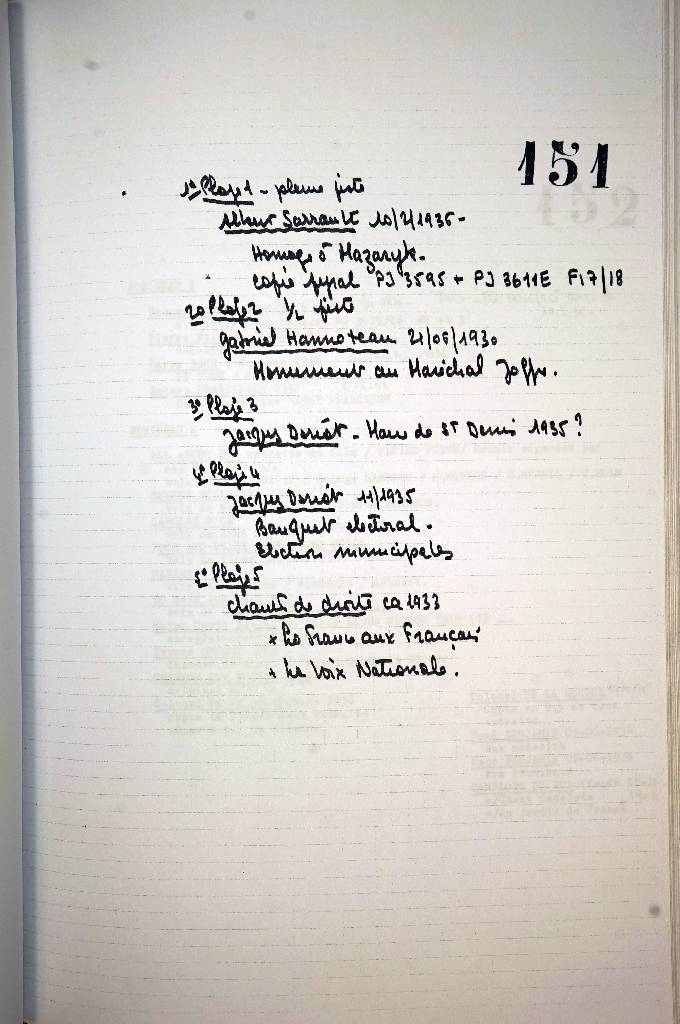 151
1° Plage 1 - pleine piste
Albert Sarrault 10/2/1935 -
Homage à Mazaryk.
copie pyral PJ 3595 + PJ 3611E F17/18
2° Plage 2 1/2 piste
Gabriel Hannoteau 21/06/1930
Monument au Maréchal Joffre.
3° Plage 3
Jacques Doriot - Maire de St Denis 1935 ?
4° Plage 4
Jacques Doriot 11/1935
Banquet electoral.
Election municipales
5° Plage 5
chants de droite ca 1933
× La France aux Français
+ La Voix Nationale.